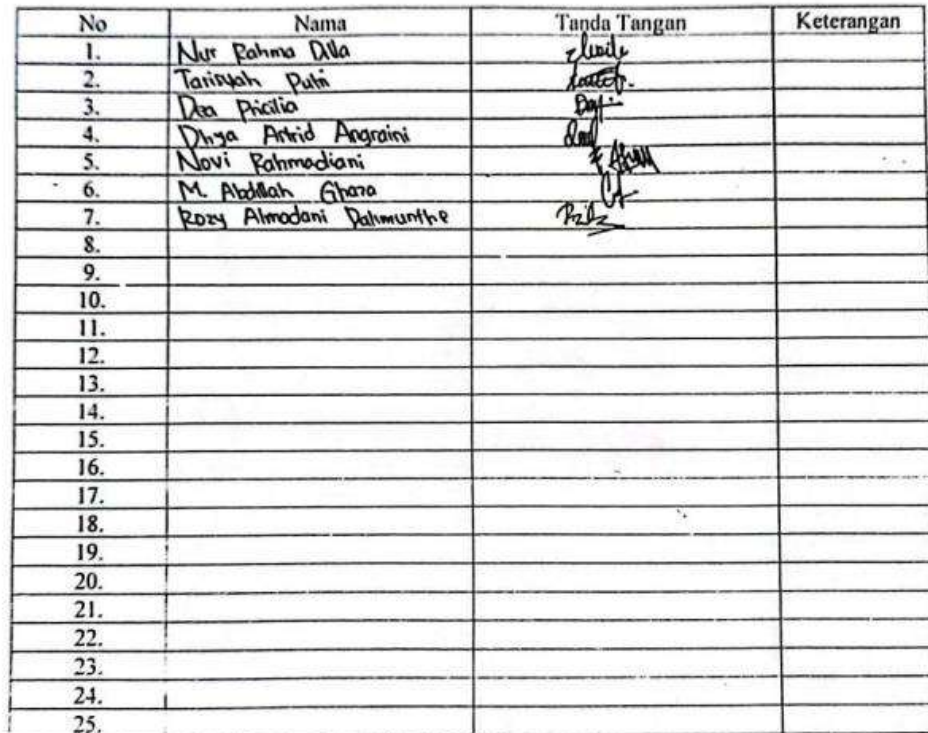 No Nama Tanda Tangan Keterangan
1. Nur Rahma Dilla
2. Tarisyah Putri
3. Dea Pricilia
4. Dhya Astrid Angraini
5. Novi Rahmadiani
6. M. Abdillah Ghaza
7. Rozy Almadani Dalimunthe
8.
9.
10.
11.
12.
13.
14.
15.
16.
17.
18.
19.
20.
21.
22.
23.
24.
25.